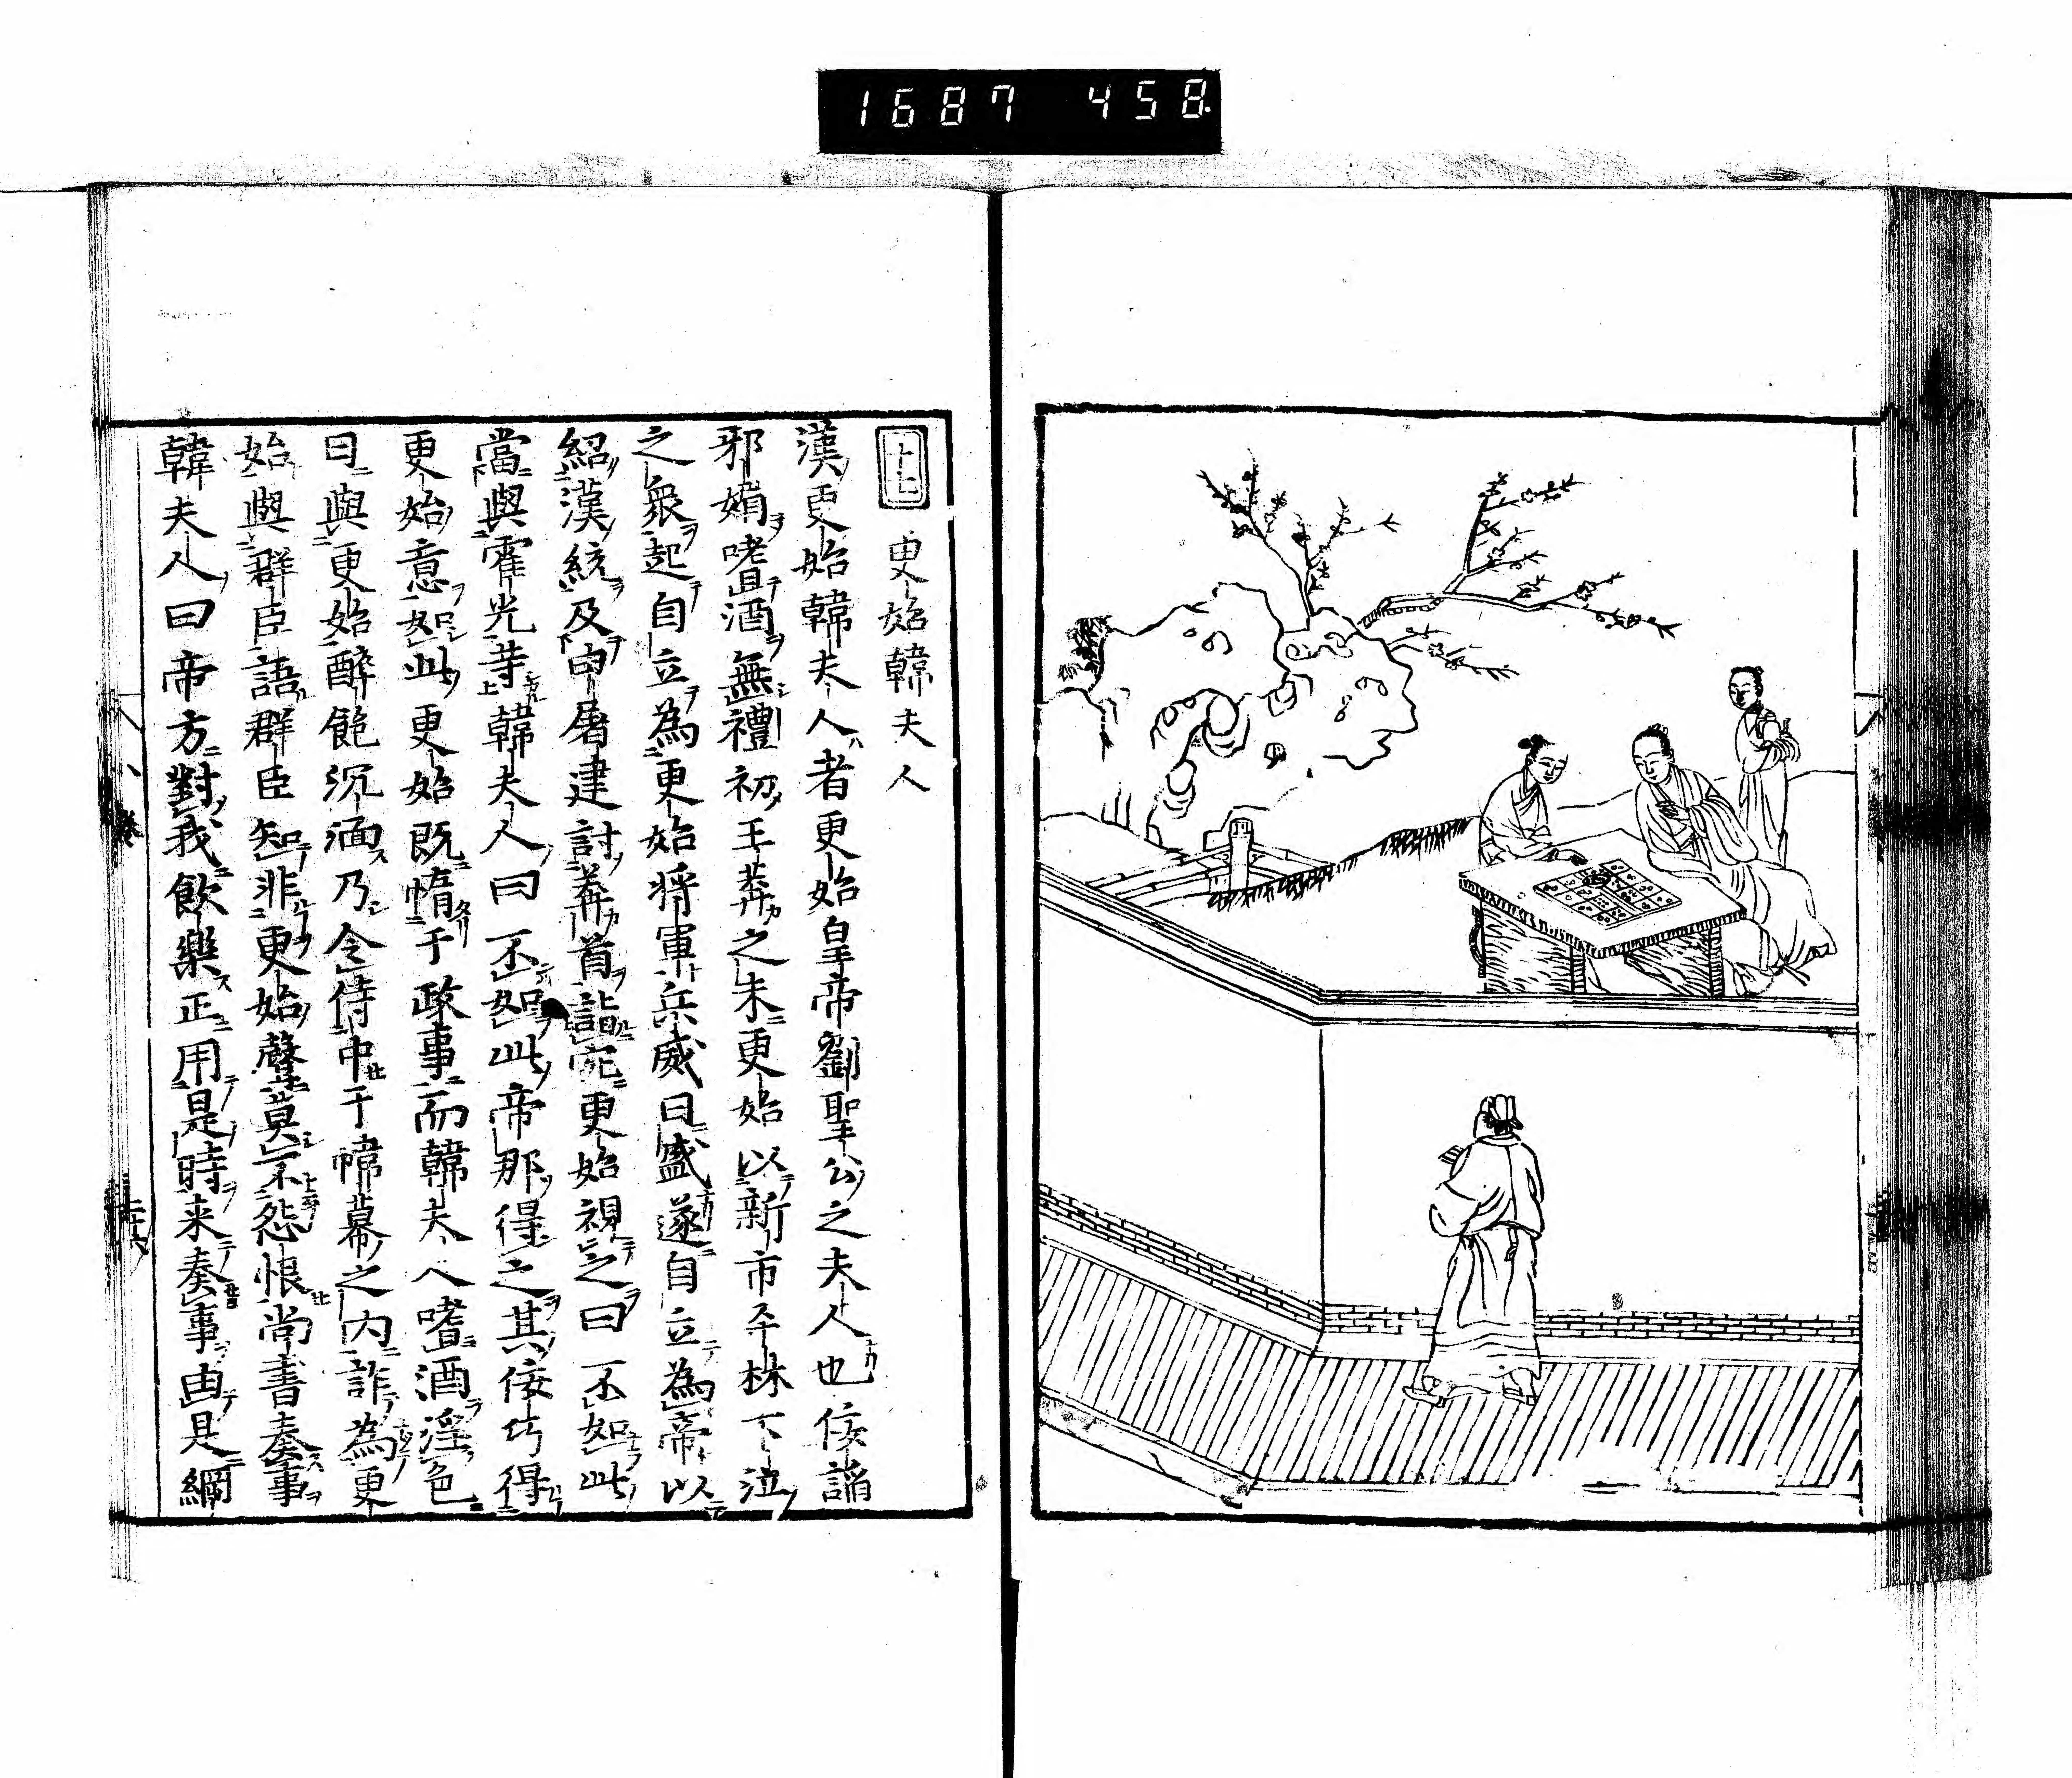 1687 458
十七 更始韓夫人
漢更始韓夫人者更始皇帝劉聖公之夫人也佞諂
邪媚嗜酒無禮初王莽之末更始以新市平林下江
之衆起自立為更始將軍兵威日盛遂自立為帝以
紹漢統及申屠建討莽首詣宛更始視之曰不如此
當與霍光等韓夫人曰不如此帝那得之其佞巧得
更始意如此更始既惰于政事而韓夫人嗜酒淫色
日與更始醉飽沉湎乃令侍中于幃幕之内詐為更
始與群臣語群臣知非更始聲莫不怨恨尚書奏事
韓夫人曰帝方對我飲樂正用是時来奏事由是綱